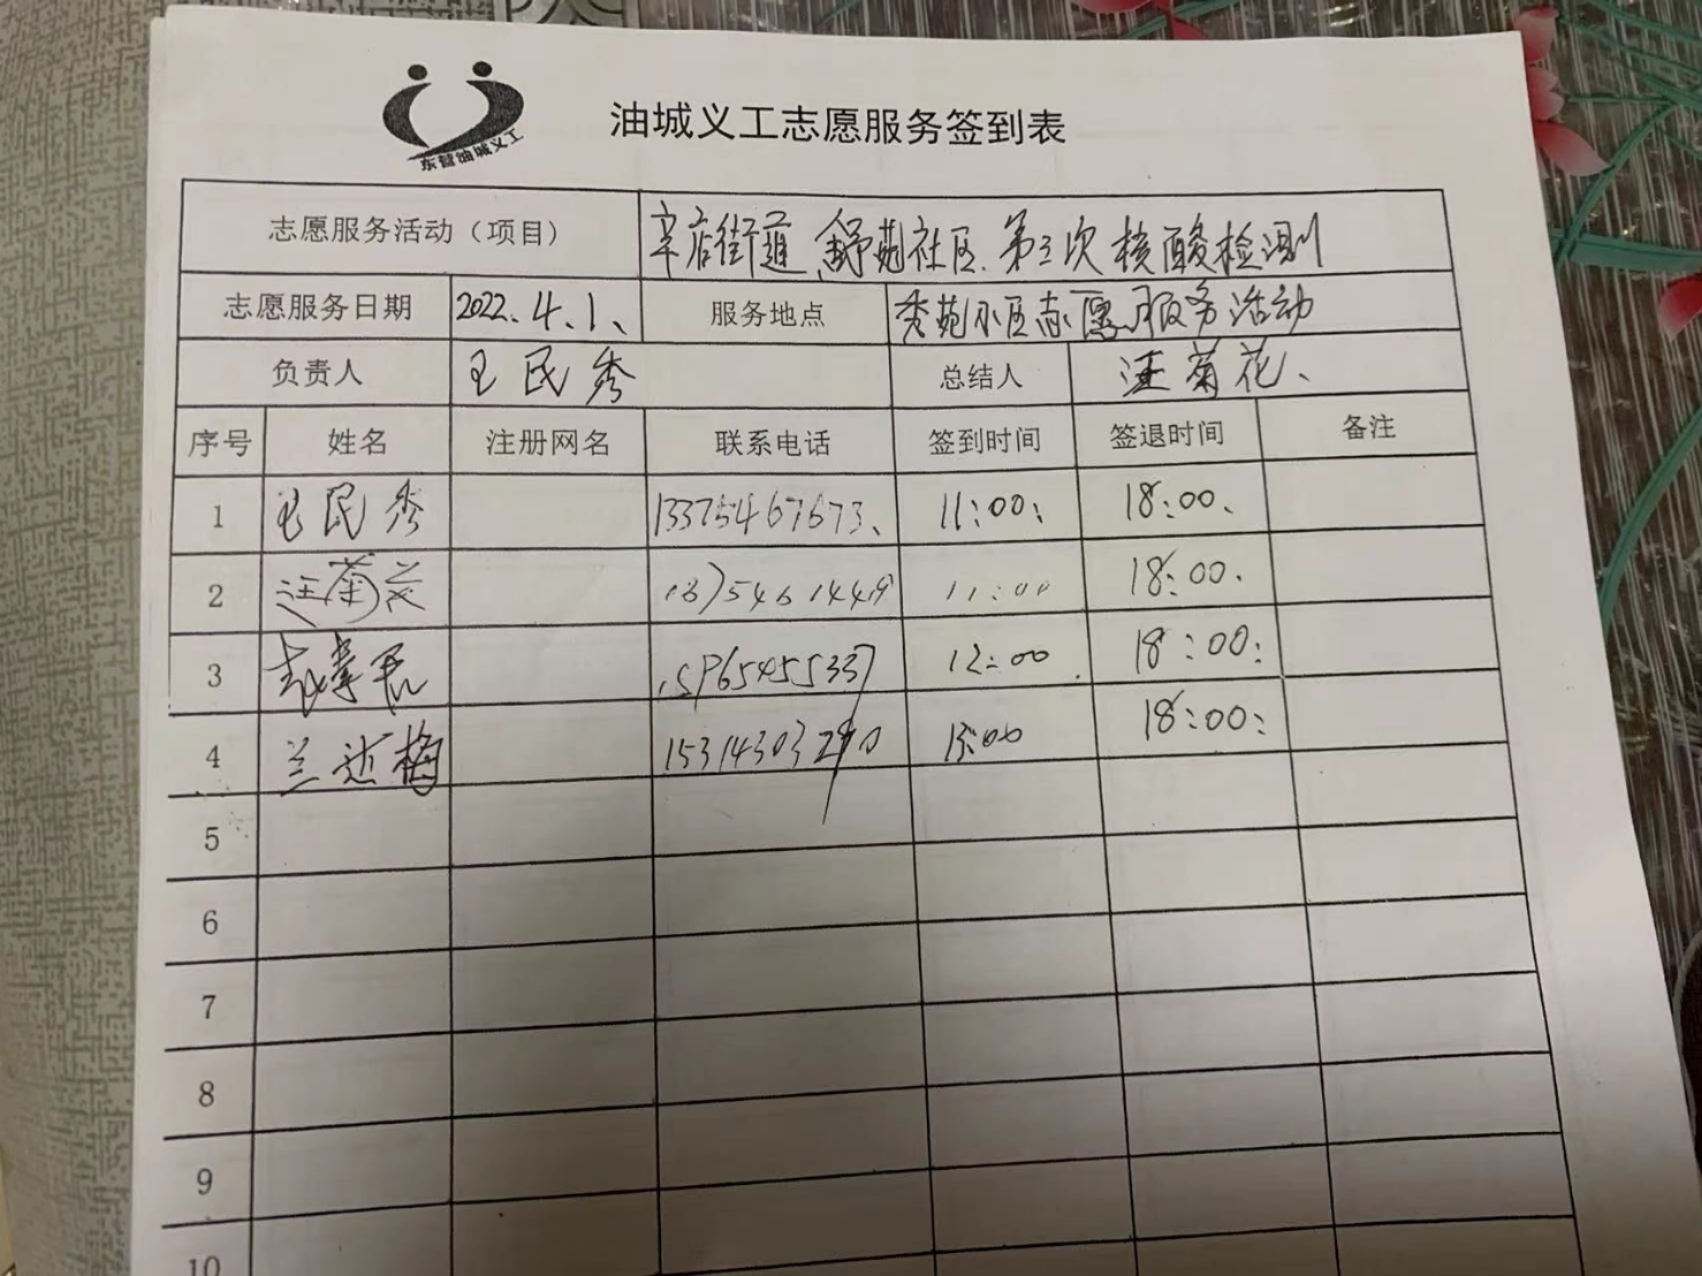 东营油城义工
油城义工志愿服务签到表
志愿服务活动（项目） 辛店街道、舒苑社区、第三次核酸检测
志愿服务日期 2022.4.1、 服务地点 秀苑小区志愿服务活动
负责人 王民秀 总结人 汪菊花、
序号 姓名 注册网名 联系电话 签到时间 签退时间 备注
1 王民秀 13375467673、 11:00: 18:00、
2 汪菊花 18754614449 11:00 18:00.
3 15965455337 12:00 18:00:
4 兰近梅 15314303290 13:00 18:00:
5
6
7
8
9
10